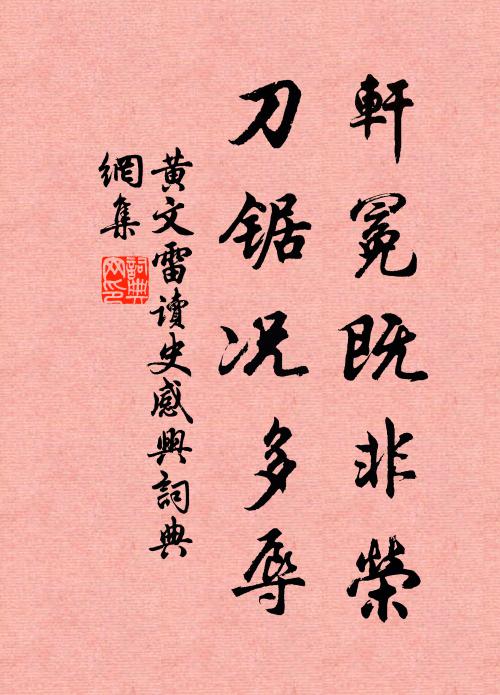 軒冕既非榮
刀锯况多辱
黃文雷讀史感興詞典
網集
詞典
网印